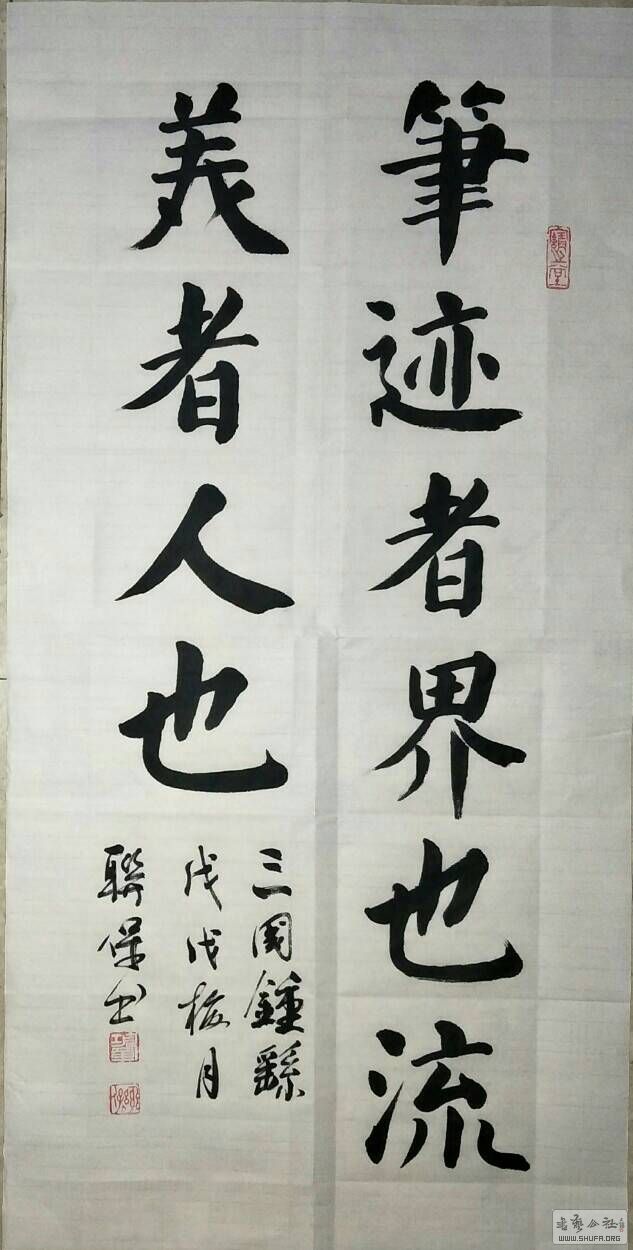 筆迹者界也流
美者人也
三國鍾繇
戊戌梅月
聯保书
書法公社
WWW.SHUFA.ORG